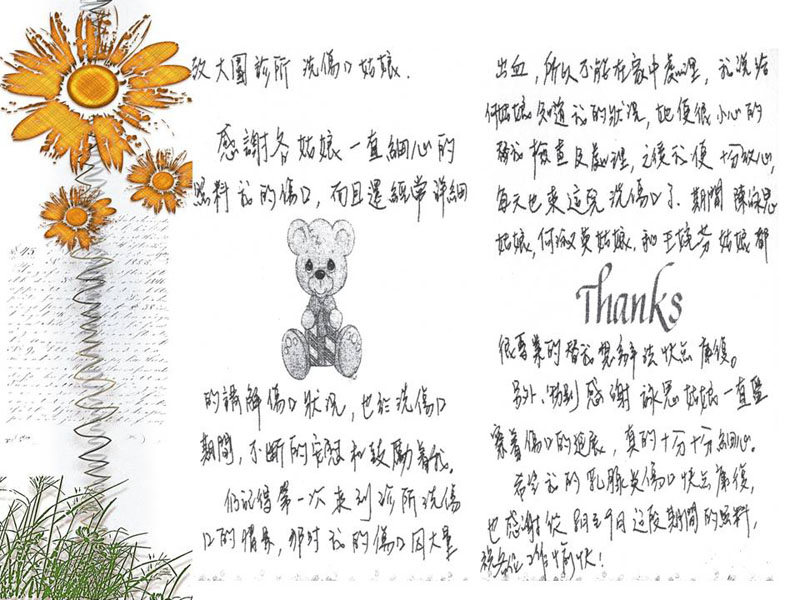 致大圍診所 洗傷口姑娘.
感謝各姑娘一直細心的
照料我的傷口,而且還經常詳細
的講解傷口狀況,也於洗傷口
期間,不斷的安慰和鼓勵着我。
仍記得第一次來到診所洗傷
口的情景,那時我的傷口因大量
出血,所以不能在家中處理,我洗給
何姑娘知道我的狀況,她便很小心的
替我檢查及處理,之後我便十分放心,
每天也來這兒洗傷口了.期間 陳詠思
姑娘,何淑英姑娘,和王婉芳姑娘都
Thanks
很專業的替我想辦法快点康復。
另外,特別感謝詠思姑娘一直監
察着傷口的進展,真的十分十分細心。
希望我的乳腺炎傷口快点康復,
也感謝從8月至9月這段期間的照料,
祝各位工作愉快!